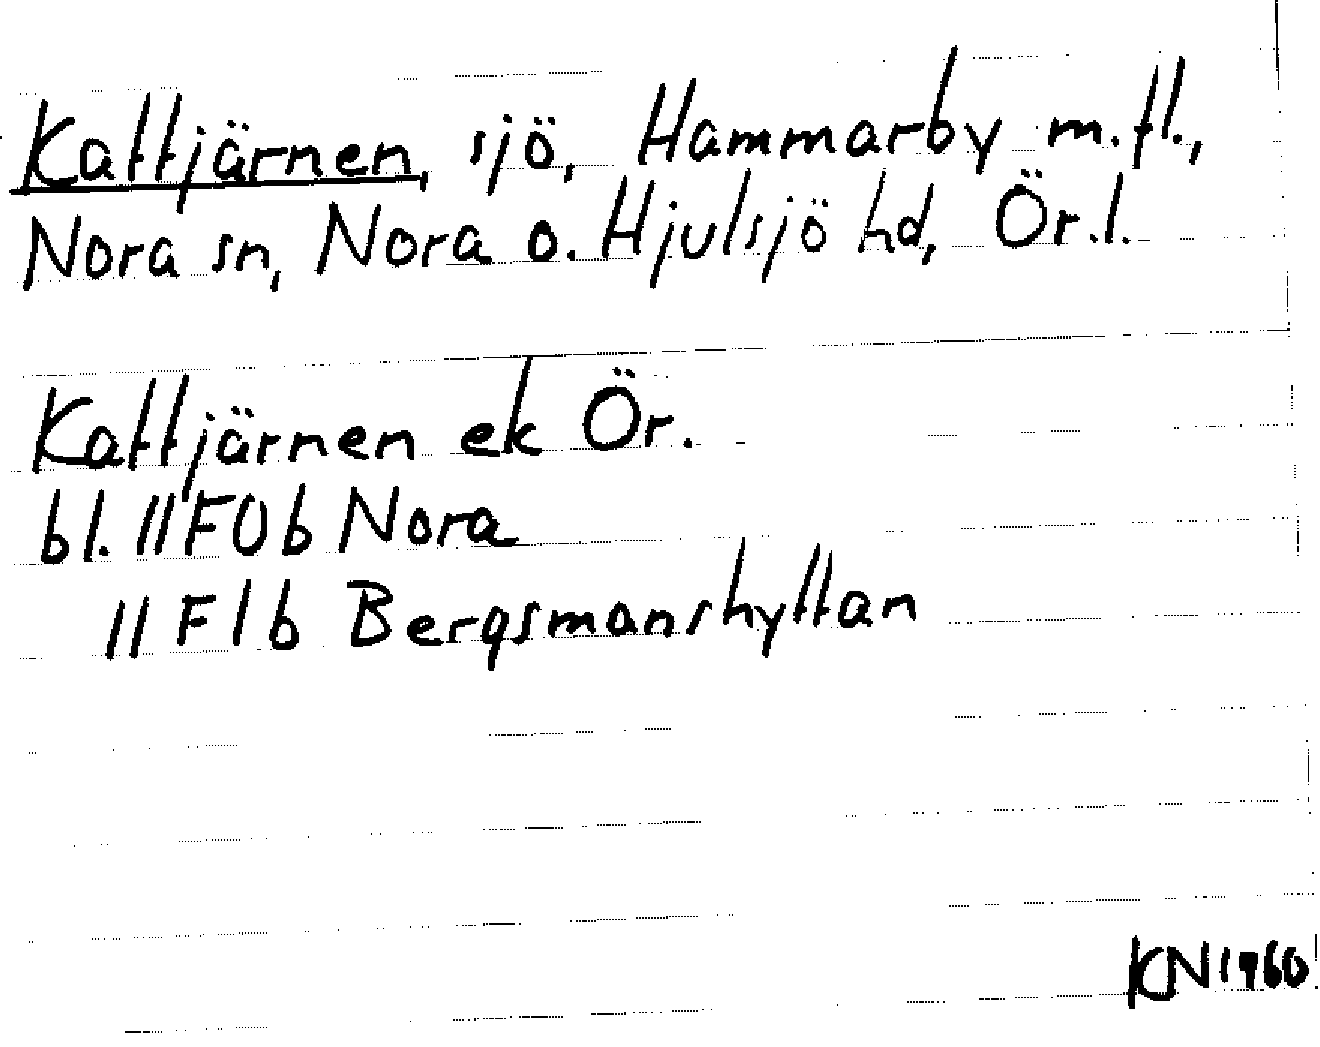 Kattjärnen, sjö, Hammarby m.fl.,
Nora sn, Nora o. Hjulsjö hd, Ör.l.
Kattjärnen ek Ör.
bl. 11F0b Nora
11F1b Bergsmanshyttan
KN 1960